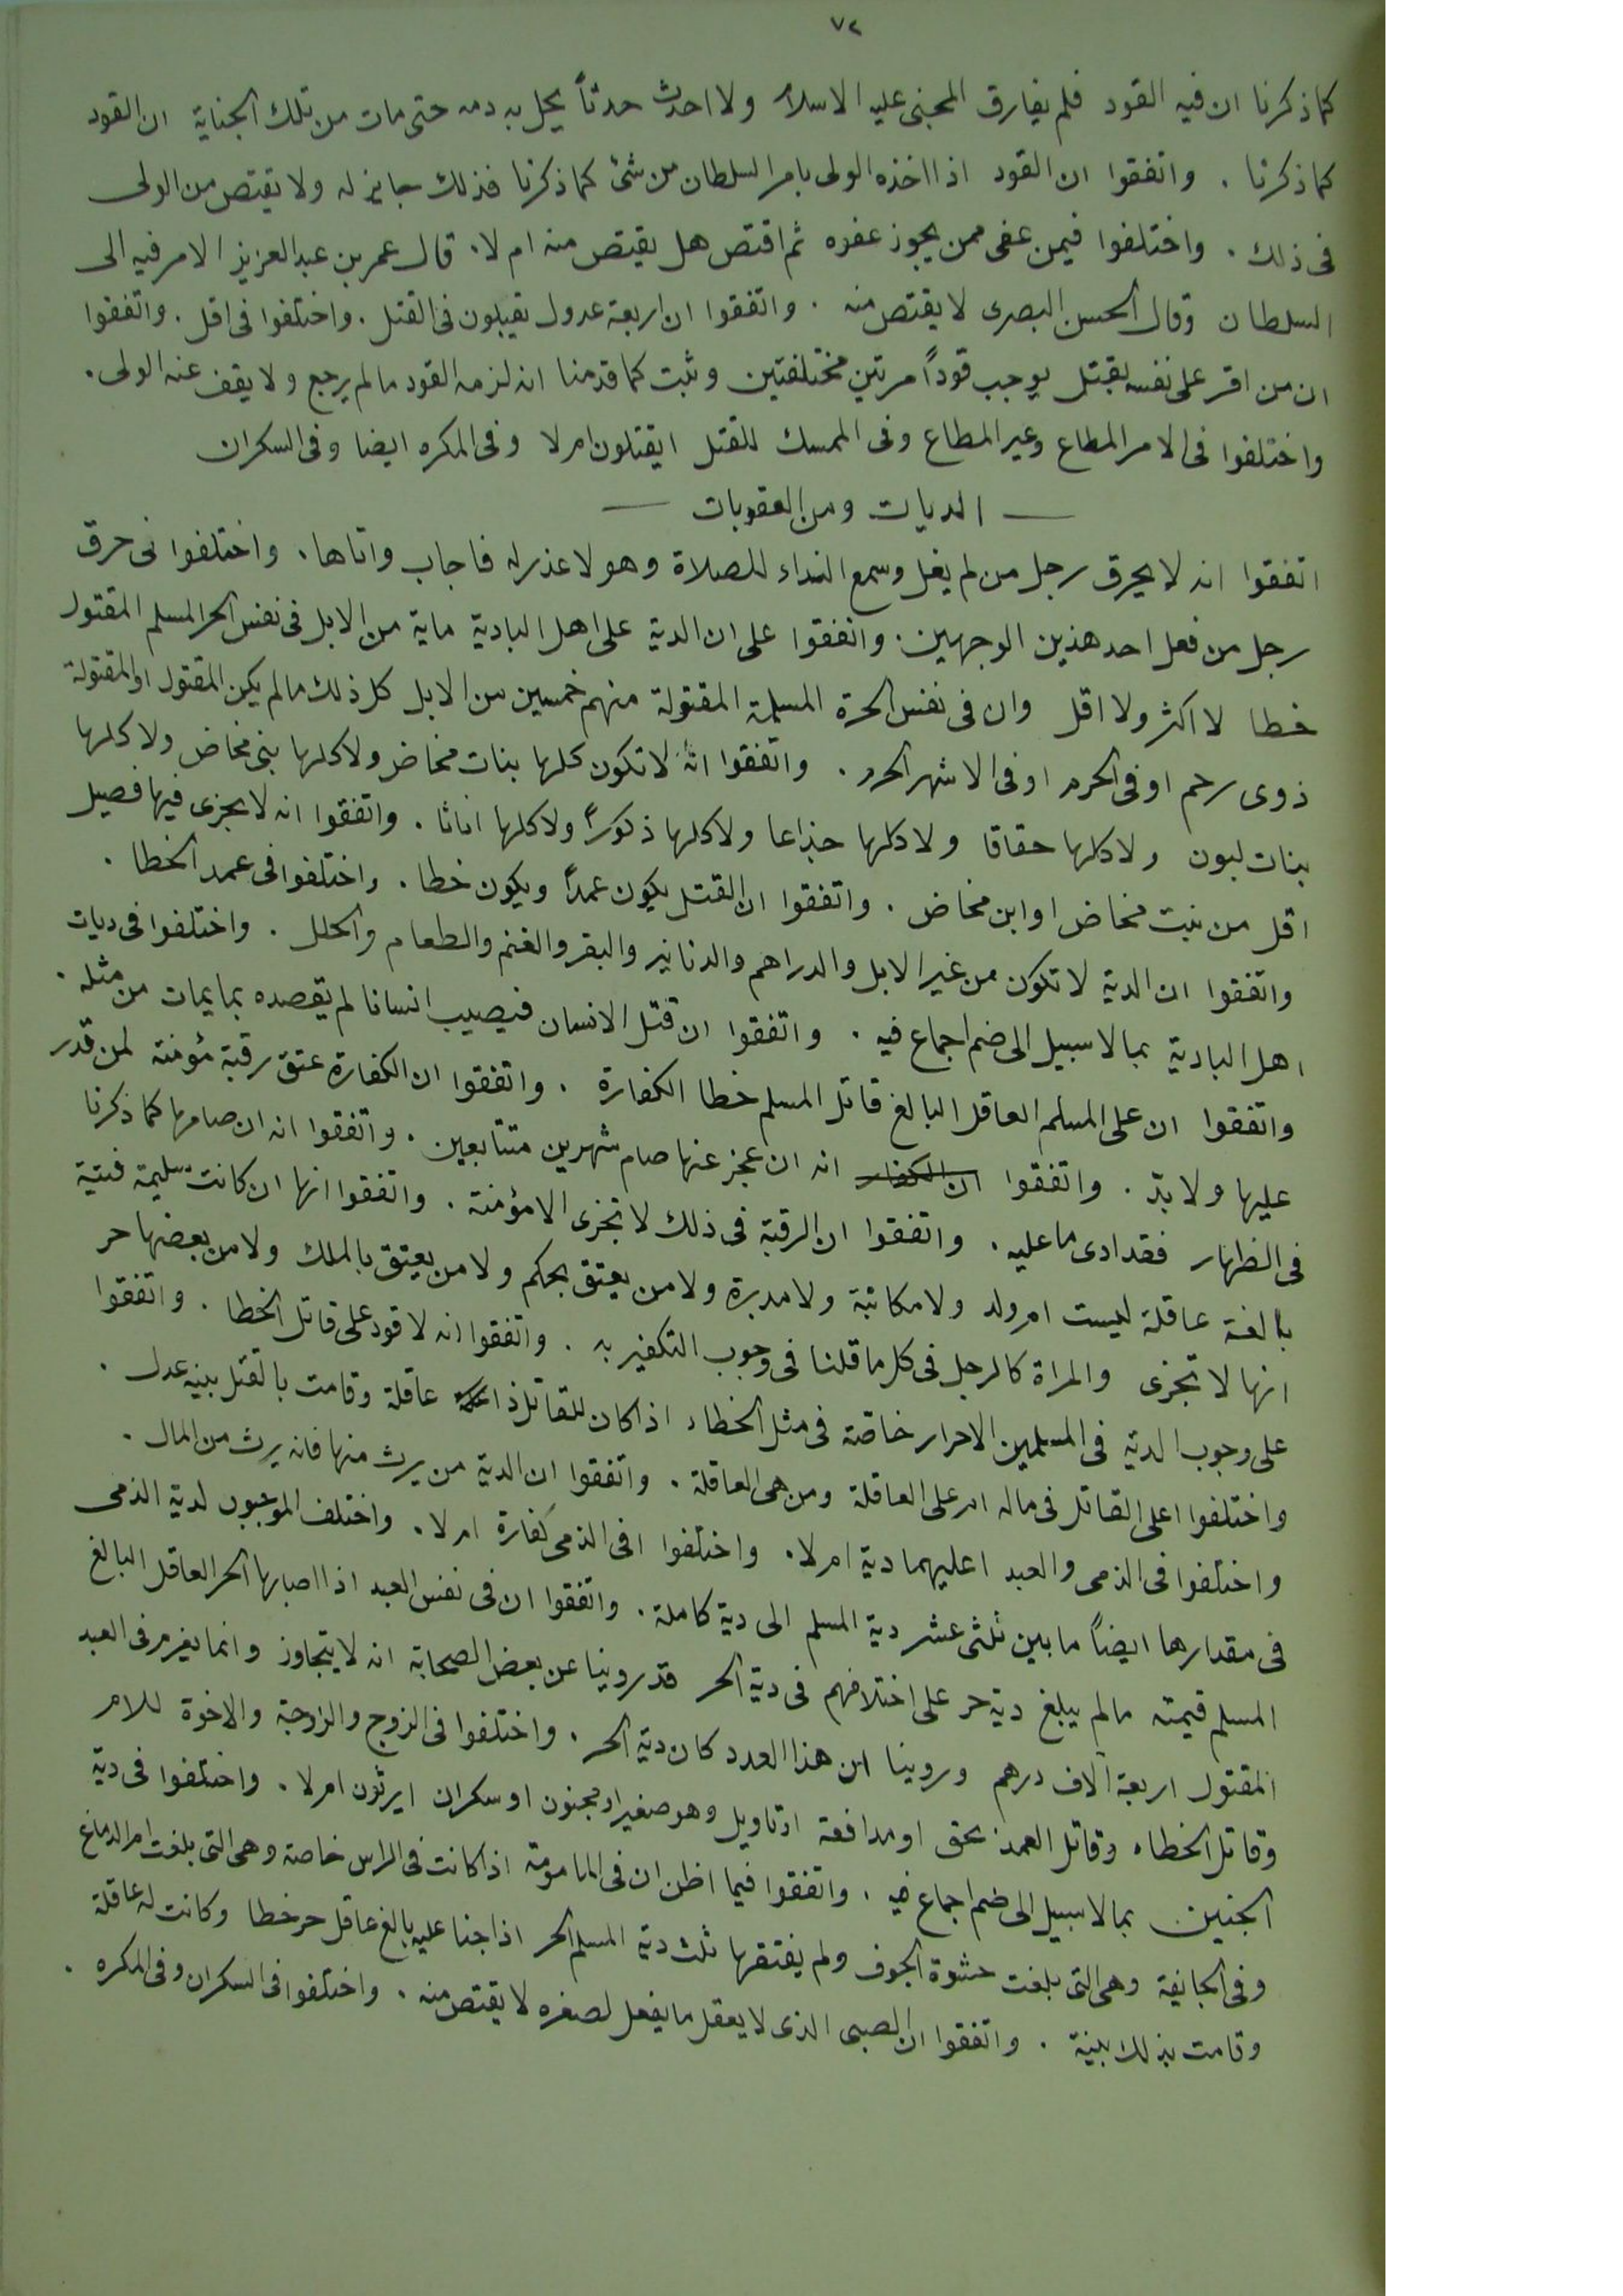 ٧٢
كما ذكرنا ان فيه القود فلم يفارق المجنى عليه الاسلام ولا احدث حدثاً يحل به دمه حتى مات من تلك الجناية ان القود
كما ذكرنا . واتفقوا ان القود اذا اخذه الولى بامر السلطان من شئ كما ذكرنا فذلك جايز له ولا يقتص من الولى
فى ذلك . واختلفوا فيمن عفى ممن يجوز عفوه ثم اقتص هل يقتص منه ام لا . قال عمر بن عبد العزيز الامر فيه الى
السلطان وقال الحسن البصرى لا يقتص منه . واتفقوا ان اربعة عدول يقبلون فى القتل . واختلفوا فى اقل . واتفقوا
ان من اقر على نفسه بقتل يوجب قوداً مرتين مختلفتين وثبت كما قدمنا انه لزمه القود ما لم يرجع ولا يقف عنه الولى .
واختلفوا فى الامر المطاع وغير المطاع وفى الممسك للقتل ايقتلون ام لا وفى المكره ايضا وفى السكران
— الديات ومن العقوبات —
اتفقوا انه لا يحرق رجل من لم يغل وسمع النداء للصلاة وهو لا عذر له فاجاب واتاها . واختلفوا فى حرق
رجل من فعل احد هذين الوجهين . واتفقوا على ان الدية على اهل البادية ماية من الابل فى نفس الحر المسلم المقتول
خطا لا اكثر ولا اقل وان فى نفس الحرة المسلمة المقتولة منهم خمسين من الابل كل ذلك ما لم يكن المقتول او المقتولة
ذوى رحم او فى الحرم او فى الاشهر الحرم . واتفقوا انه لا تكون كلها بنات مخاض ولا كلها بنى مخاض ولا كلها
بنات لبون ولا كلها حقاقا ولا كلها جذاعا ولا كلها ذكوراً ولا كلها اناثا . واتفقوا انه لا يجزى فيها فصيل
اقل من بنت مخاض او ابن مخاض . واتفقوا ان القتل يكون عمداً ويكون خطا . واختلفوا فى عمد الخطا .
واتفقوا ان الدية لا تكون من غير الابل والدراهم والدنانير والبقر والغنم والطعام والحلل . واختلفوا فى ديات
اهل البادية بما لا سبيل الى ضم اجماع فيه . واتفقوا ان قتل الانسان فيصيب انسانا لم يقصده بما يمات من مثله .
واتفقوا ان على المسلم العاقل البالغ قاتل المسلم خطا الكفارة . واتفقوا ان الكفارة عتق رقبة مؤمنة لمن قدر
عليها ولا بدّ . واتفقوا ان الكفار انه ان عجز عنها صام شهرين متتابعين . واتفقوا انه ان صامها كما ذكرنا
فى الظهار فقد ادى ما عليه . واتفقوا ان الرقبة فى ذلك لا تجزى الا مؤمنة . واتفقوا انها ان كانت سليمة فتية
بالغة عاقلة ليست ام ولد ولا مكاتبة ولا مدبرة ولا من يعتق بحكم ولا من يعتق بالملك ولا من بعضها حر
انها لا تجزى والمراة كالرجل فى كل ما قلنا فى وجوب التكفير به . واتفقوا انه لا قود على قاتل الخطا . واتفقوا
على وجوب الدية فى المسلمين الاحرار خاصة فى مثل الخطاء اذا كان للقاتل ذا عاقلة وقامت بالقتل بينة عدل .
واختلفوا اعلى القاتل فى ماله ام على العاقلة ومن هى العاقلة . واتفقوا ان الدية من يرث منها فانه يرث من المال .
واختلفوا فى الذمى والعبد اعليهما دية ام لا . واختلفوا افى الذمى كفارة ام لا . واختلف الموجبون لدية الذمى
فى مقدارها ايضاً ما بين ثلثى عشر دية المسلم الى دية كاملة . واتفقوا ان فى نفس العبد اذا اصابها الحر العاقل البالغ
المسلم قيمته ما لم يبلغ دية حر على اختلافهم فى دية الحر قد روينا عن بعض الصحابة انه لا يتجاوز وانما يغرم فى العبد
المقتول اربعة آلاف درهم وروينا ان هذا العدد كان دية الحر . واختلفوا فى الزوج والزوجة والاخوة للام
وقاتل الخطاء وقاتل العمد بحق او مدافعة او تاويل وهو صغير او مجنون او سكران ايرثون ام لا . واختلفوا فى دية
الجنين بما لا سبيل الى ضم اجماع فيه . واتفقوا فيما اظن ان فى المامومة اذا كانت فى الراس خاصة وهى التى بلغت ام الدماغ
وفى الجايفة وهى التى بلغت حشوة الجوف ولم يفتقها ثلث دية المسلم الحر اذا جنا عليه بالغ عاقل حر خطا وكانت له عاقلة
وقامت بذلك بينة . واتفقوا ان الصبى الذى لا يعقل ما يفعل لصغره لا يقتص منه . واختلفوا فى السكران وفى المكره .